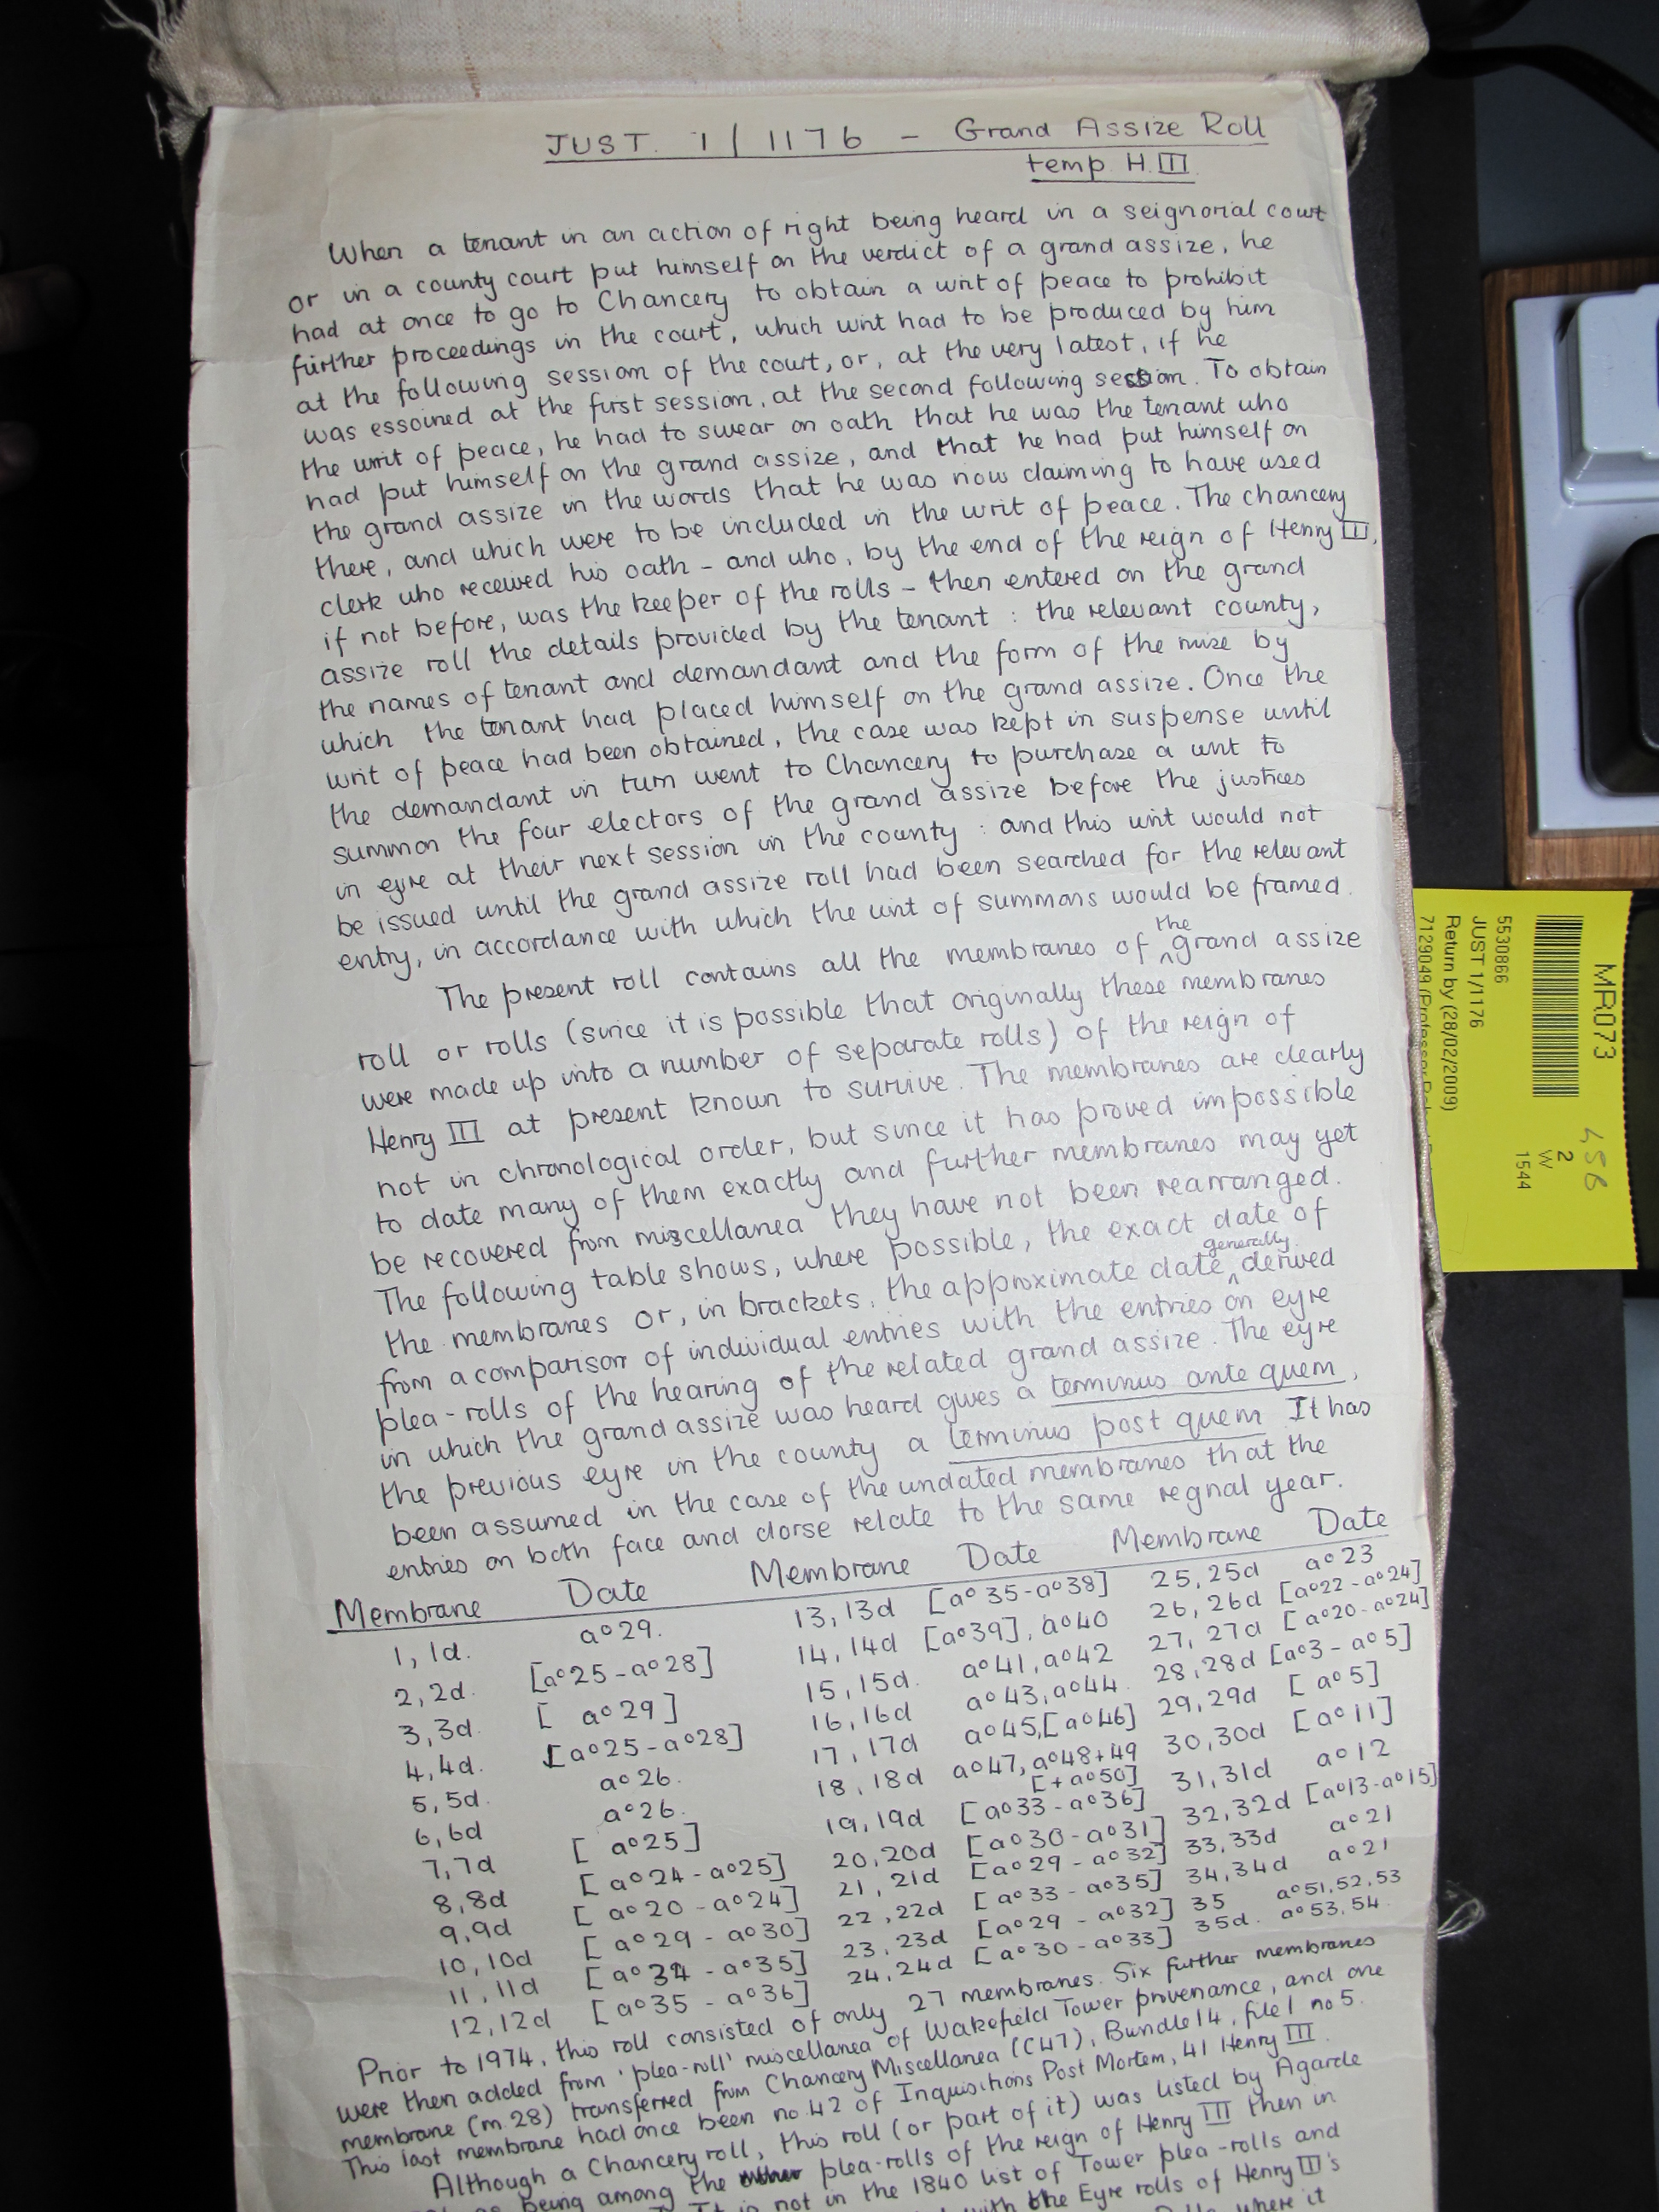 JUST. 1/1176 - Grand Assize Roll
temp. H.III.
When a tenant in an action of right being heard in a seignorial court
or in a county court put himself on the verdict of a grand assize, he
had at once to go to Chancery to obtain a writ of peace to prohibit
further proceedings in the court, which writ had to be produced by him
at the following session of the court, or, at the very latest, if he
was essoined at the first session, at the second following session. To obtain
the writ of peace, he had to swear on oath that he was the tenant who
had put himself on the grand assize, and that he had put himself on
the grand assize in the words that he was now claiming to have used
there, and which were to be included in the writ of peace. The chancery
clerk who received his oath - and who, by the end of the reign of Henry III,
if not before, was the keeper of the rolls - then entered on the grand
assize roll the details provided by the tenant : the relevant county,
the names of tenant and demandant and the form of the mise by
which the tenant had placed himself on the grand assize. Once the
writ of peace had been obtained, the case was kept in suspense until
the demandant in turn went to Chancery to purchase a writ to
summon the four electors of the grand assize before the justices
in eyre at their next session in the county : and this writ would not
be issued until the grand assize roll had been searched for the relevant
entry, in accordance with which the writ of summons would be framed.
The present roll contains all the membranes of the grand assize
roll or rolls (since it is possible that originally these membranes
were made up into a number of separate rolls) of the reign of
Henry III at present known to survive. The membranes are clearly
not in chronological order, but since it has proved impossible
to date many of them exactly and further membranes may yet
be recovered from miscellanea they have not been rearranged.
The following table shows, where possible, the exact date of
the membranes or, in brackets, the approximate date generally derived
from a comparison of individual entries with the entries on eyre
plea-rolls of the hearing of the related grand assize. The eyre
in which the grand assize was heard gives a terminus ante quem,
the previous eyre in the county a terminus post quem It has
been assumed in the case of the undated membranes that the
entries on both face and dorse relate to the same regnal year.
Membrane Date Membrane Date Membrane Date
1, 1d. aº 29. 13, 13d [aº 35 - aº 38] 25, 25d aº 23
2, 2d. [aº 25 - aº 28] 14, 14d [aº 39], aº 40 26, 26d [aº 22 - aº 24]
3, 3d. [aº 29] 15, 15d. aº 41, aº 42 27, 27d [aº 20 - aº 24]
4, 4d. [aº 25 - aº 28] 16, 16d aº 43, aº 44. 28, 28d [aº 3 - aº 5]
5, 5d. aº 26. 17, 17d aº 45, [aº 46] 29, 29d [aº 5]
6, 6d aº 26. 18, 18d aº 47, aº 48 + 49 [+ aº 50] 30, 30d [aº 11]
7, 7d [aº 25] 19, 19d [aº 33 - aº 36] 31, 31d aº 12
8, 8d [aº 24 - aº 25] 20, 20d [aº 30 - aº 31] 32, 32d [aº 13 - aº 15]
9, 9d [aº 20 - aº 24] 21, 21d [aº 29 - aº 32] 33, 33d aº 21
10, 10d [aº 29 - aº 30] 22, 22d [aº 33 - aº 35] 34, 34d aº 21
11, 11d [aº 34 - aº 35] 23, 23d [aº 29 - aº 32] 35 aº 51, 52, 53
12, 12d [aº 35 - aº 36] 24, 24d [aº 30 - aº 33] 35d. aº 53, 54.
Prior to 1974, this roll consisted of only 27 membranes. Six further membranes
were then added from 'plea-roll' miscellanea of Wakefield Tower provenance, and one
membrane (m.28) transferred from Chancery Miscellanea (C47), Bundle 14, file 1 no 5.
This last membrane had once been no.42 of Inquisitions Post Mortem, 41 Henry III.
Although a Chancery roll, this roll (or part of it) was listed by Agarde
being among the plea-rolls of the reign of Henry III then in
is not in the 1840 list of Tower plea-rolls and
with the Eyre rolls of Henry III's
where it
MR073
5530866
JUST 1/1176
Return by (28/02/2009)
2
W
1544